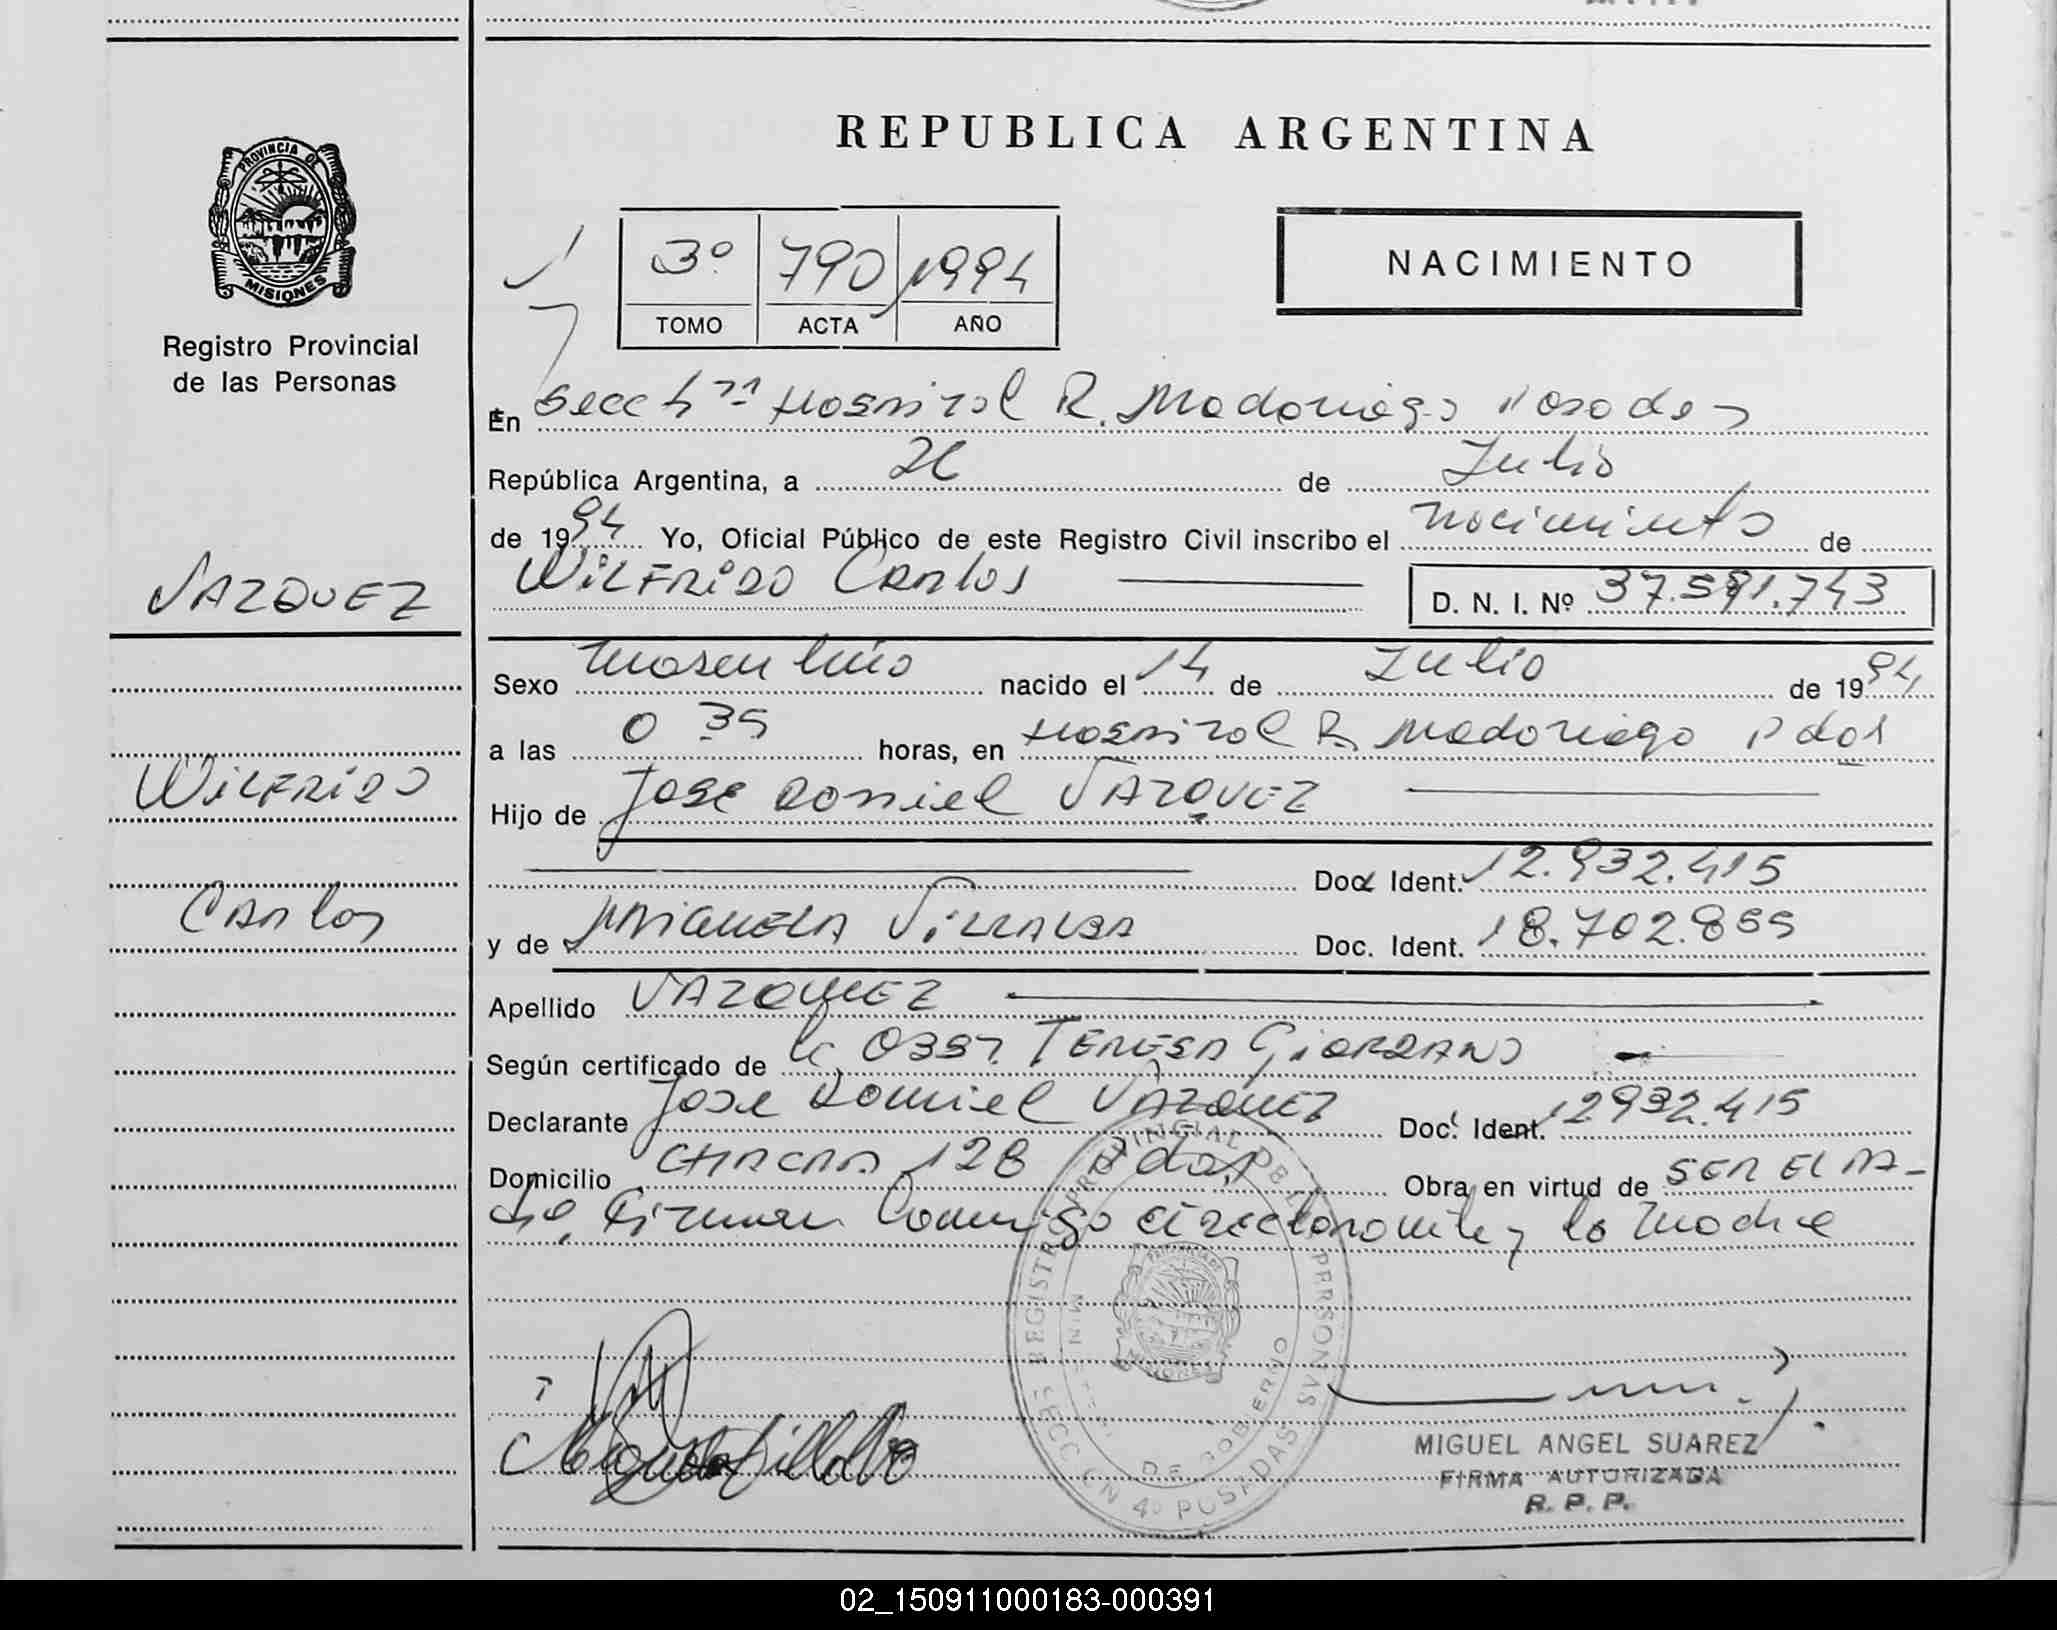 REPUBLICA ARGENTINA
PROVINCIA DE
MISIONES
Registro Provincial
de las Personas
3º 790 1994
TOMO ACTA AÑO
NACIMIENTO
En Secc 4ta Hospital R. Madariaga Posadas
República Argentina, a 26 de Julio
de 1994 Yo, Oficial Público de este Registro Civil inscribo el nacimiento de
VAZQUEZ
Wilfrido Carlos
D. N. I. Nº 37.591.743
Sexo masculino nacido el 14 de Julio de 1994
a las 0 35 horas, en Hospital R. Madariaga Pdas
Wilfrido
Hijo de Jose Daniel VAZQUEZ
Doc. Ident. 12.932.415
Carlos
y de Miguela Villalba Doc. Ident. 18.702.855
Apellido VAZQUEZ
Según certificado de la Obst. Teresa Giordano
Declarante Jose Daniel VAZQUEZ Doc. Ident. 12932.415
Domicilio CHACRA 128 Pdas Obra en virtud de SER EL PA-
dre, Firman Conmigo el declarante y la madre
REGISTRO PROVINCIAL DE LAS PERSONAS
MINISTERIO DE GOBIERNO
SECCION 4º POSADAS
MISIONES
Miguela Villalba
MIGUEL ANGEL SUAREZ
FIRMA AUTORIZADA
R. P. P.
02_150911000183-000391